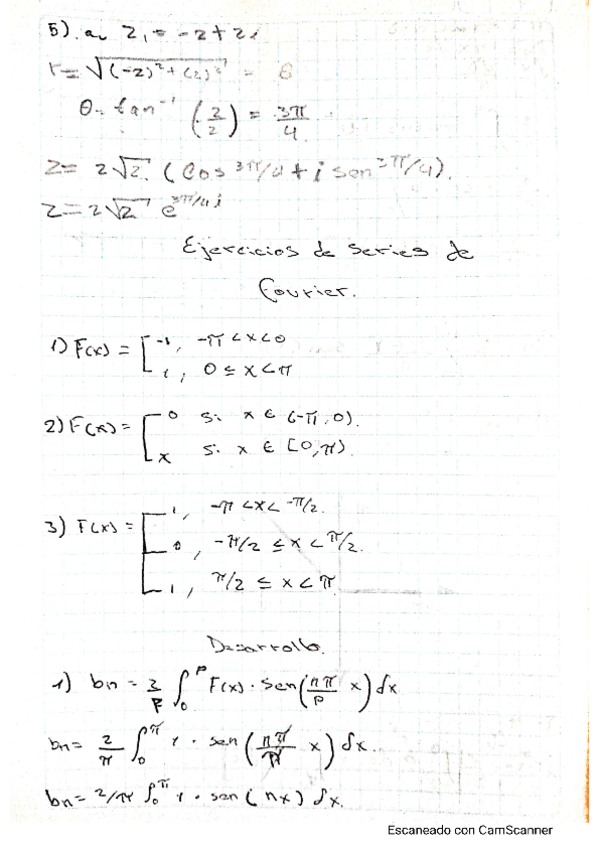 5). a. Z₁ = -2 + 2i
r = √((-2)² + (2)²) = 8
θ = tan⁻¹ (2/2) = 3π/4
Z = 2√2 (Cos 3π/4 + i sen 3π/4).
Z = 2√2 e^(3π/4 i)
Ejercicios de series de
Fourier.
1) F(x) = [ -1, -π < x < 0
1, 0 ≤ x < π
2) F(x) = [ 0 si x ∈ (-π, 0).
x si x ∈ [0, π).
3) F(x) = [ 1, -π < x < -π/2.
0, -π/2 ≤ x < π/2.
1, π/2 ≤ x < π
Desarrollo.
1) bn = 2/p ∫₀^p F(x) · sen(nπ/p x) dx
bn = 2/π ∫₀^π 1 · sen (nπ/π x) dx.
bn = 2/π ∫₀^π 1 · sen (nx) dx.
Escaneado con CamScanner